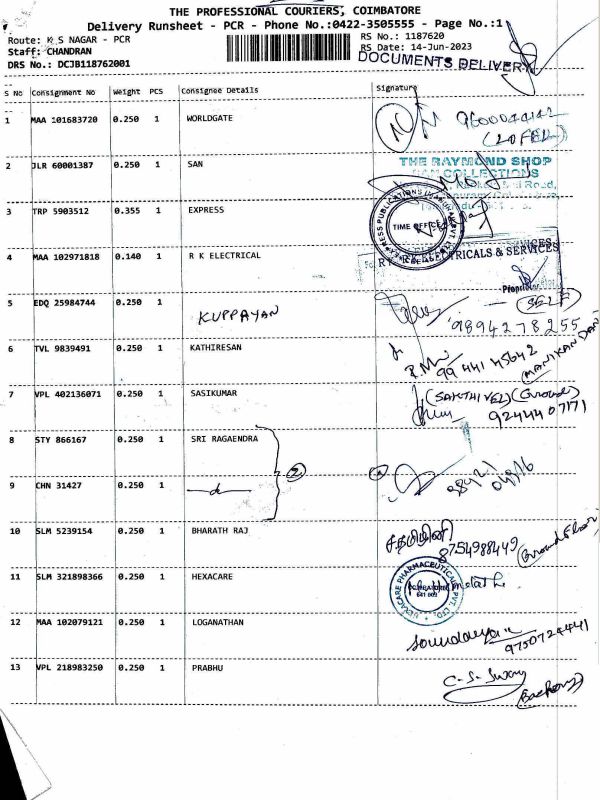 THE PROFESSIONAL COURIERS, COIMBATORE
Delivery Runsheet - PCR - Phone No.:0422-3505555 - Page No.:1
Route: K S NAGAR - PCR
RS No.: 1187620
Staff: CHANDRAN
RS Date: 14-Jun-2023
DRS No.: DCJB118762001
DOCUMENTS DELIVERY
S No Consignment No Weight PCS Consignee Details Signature
1 MAA 101683720 0.250 1 WORLDGATE
2 JLR 60001387 0.250 1 SAN
THE RAYMOND SHOP
COLLECTIONS
3 TRP 5903512 0.355 1 EXPRESS
TIME OFFICE
4 MAA 102971818 0.140 1 R K ELECTRICAL
ELECTRICALS & SERVICES
5 EDQ 25984744 0.250 1 KUPPAYAN
9894278255
6 TVL 9839491 0.250 1 KATHIRESAN
99441 45642
(MANIKANDAN)
7 VPL 402136071 0.250 1 SASIKUMAR
(SAKTHIVEL) (Ground)
9244407171
8 STY 866167 0.250 1 SRI RAGAENDRA
9 CHN 31427 0.250 1
10 SLM 5239154 0.250 1 BHARATH RAJ
8754988449
(Ground Floor)
11 SLM 321898366 0.250 1 HEXACARE
HEXACARE PHARMACEUTICALS PVT. LTD.
12 MAA 102079121 0.250 1 LOGANATHAN
9750724441
13 VPL 218983250 0.250 1 PRABHU